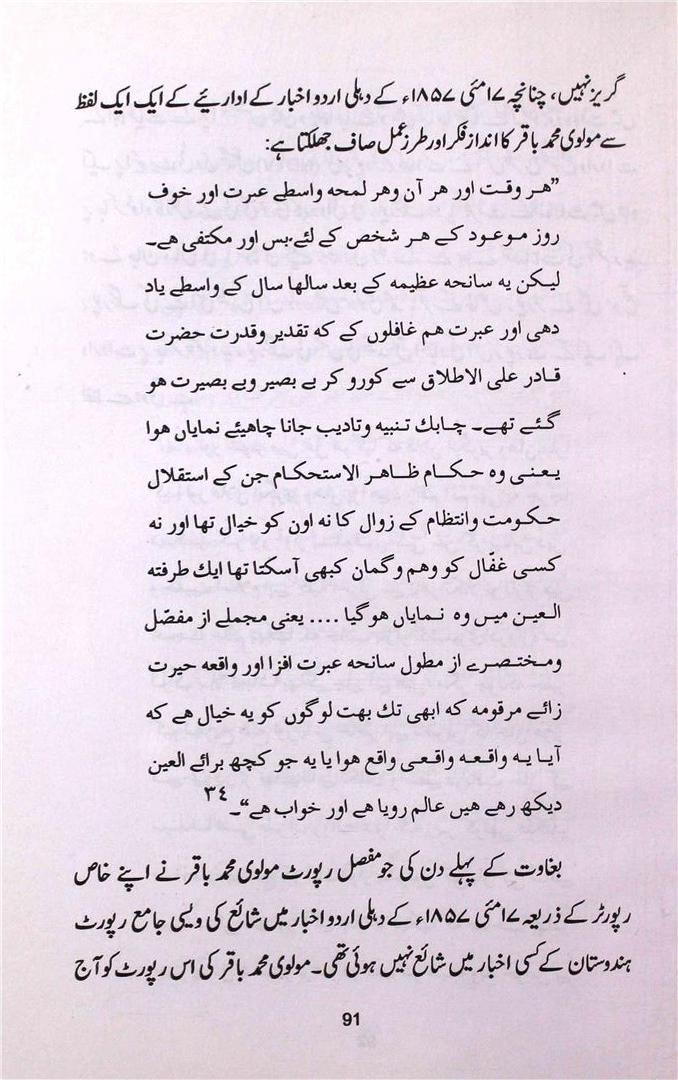 گریز نہیں، چنانچہ ۱۷ مئی ۱۸۵۷ء کے دہلی اردو اخبار کے اداریئے کے ایک ایک لفظ
سے مولوی محمد باقر کا انداز فکر اور طرز عمل صاف جھلکتا ہے:
”ھر وقت اور ھر آن وھر لمحہ واسطے عبرت اور خوف
روز موعود کے ھر شخص کے لئے،بس اور مکتفی ھے۔
لیکن یہ سانحہ عظیمہ کے بعد سالھا سال کے واسطے یاد
دھی اور عبرت ھم غافلوں کے کہ تقدیر وقدرت حضرت
قادر علی الاطلاق سے کورو کر بے بصیر وبے بصیرت ھو
گئے تھے۔ چابك تنبیہ وتادیب جانا چاھیئے نمایاں ھوا
یعنی وہ حکام ظاھر الاستحکام جن کے استقلال
حکومت وانتظام کے زوال کا نہ اون کو خیال تھا اور نہ
کسی غفّال کو وھم وگمان کبھی آسکتا تھا ایك طرفتہ
العین میں وہ نمایاں ھوگیا .... یعنی مجملے از مفصّل
ومختصرے از مطول سانحہ عبرت افزا اور واقعہ حیرت
زائے مرقومہ کہ ابھی تك بھت لوگوں کو یہ خیال ھے کہ
آیا یہ واقعہ واقعی واقع ھوا یا یہ جو کچھ برائے العین
دیکھ رھے ھیں عالم رویا ھے اور خواب ھے“۔ ٣٤
بغاوت کے پہلے دن کی جو مفصل رپورٹ مولوی محمد باقر نے اپنے خاص
رپورٹر کے ذریعہ ۱۷ مئی ۱۸۵۷ء کے دہلی اردو اخبار میں شائع کی ویسی جامع رپورٹ
ہندوستان کے کسی اخبار میں شائع نہیں ہوئی تھی۔ مولوی محمد باقر کی اس رپورٹ کو آج
91